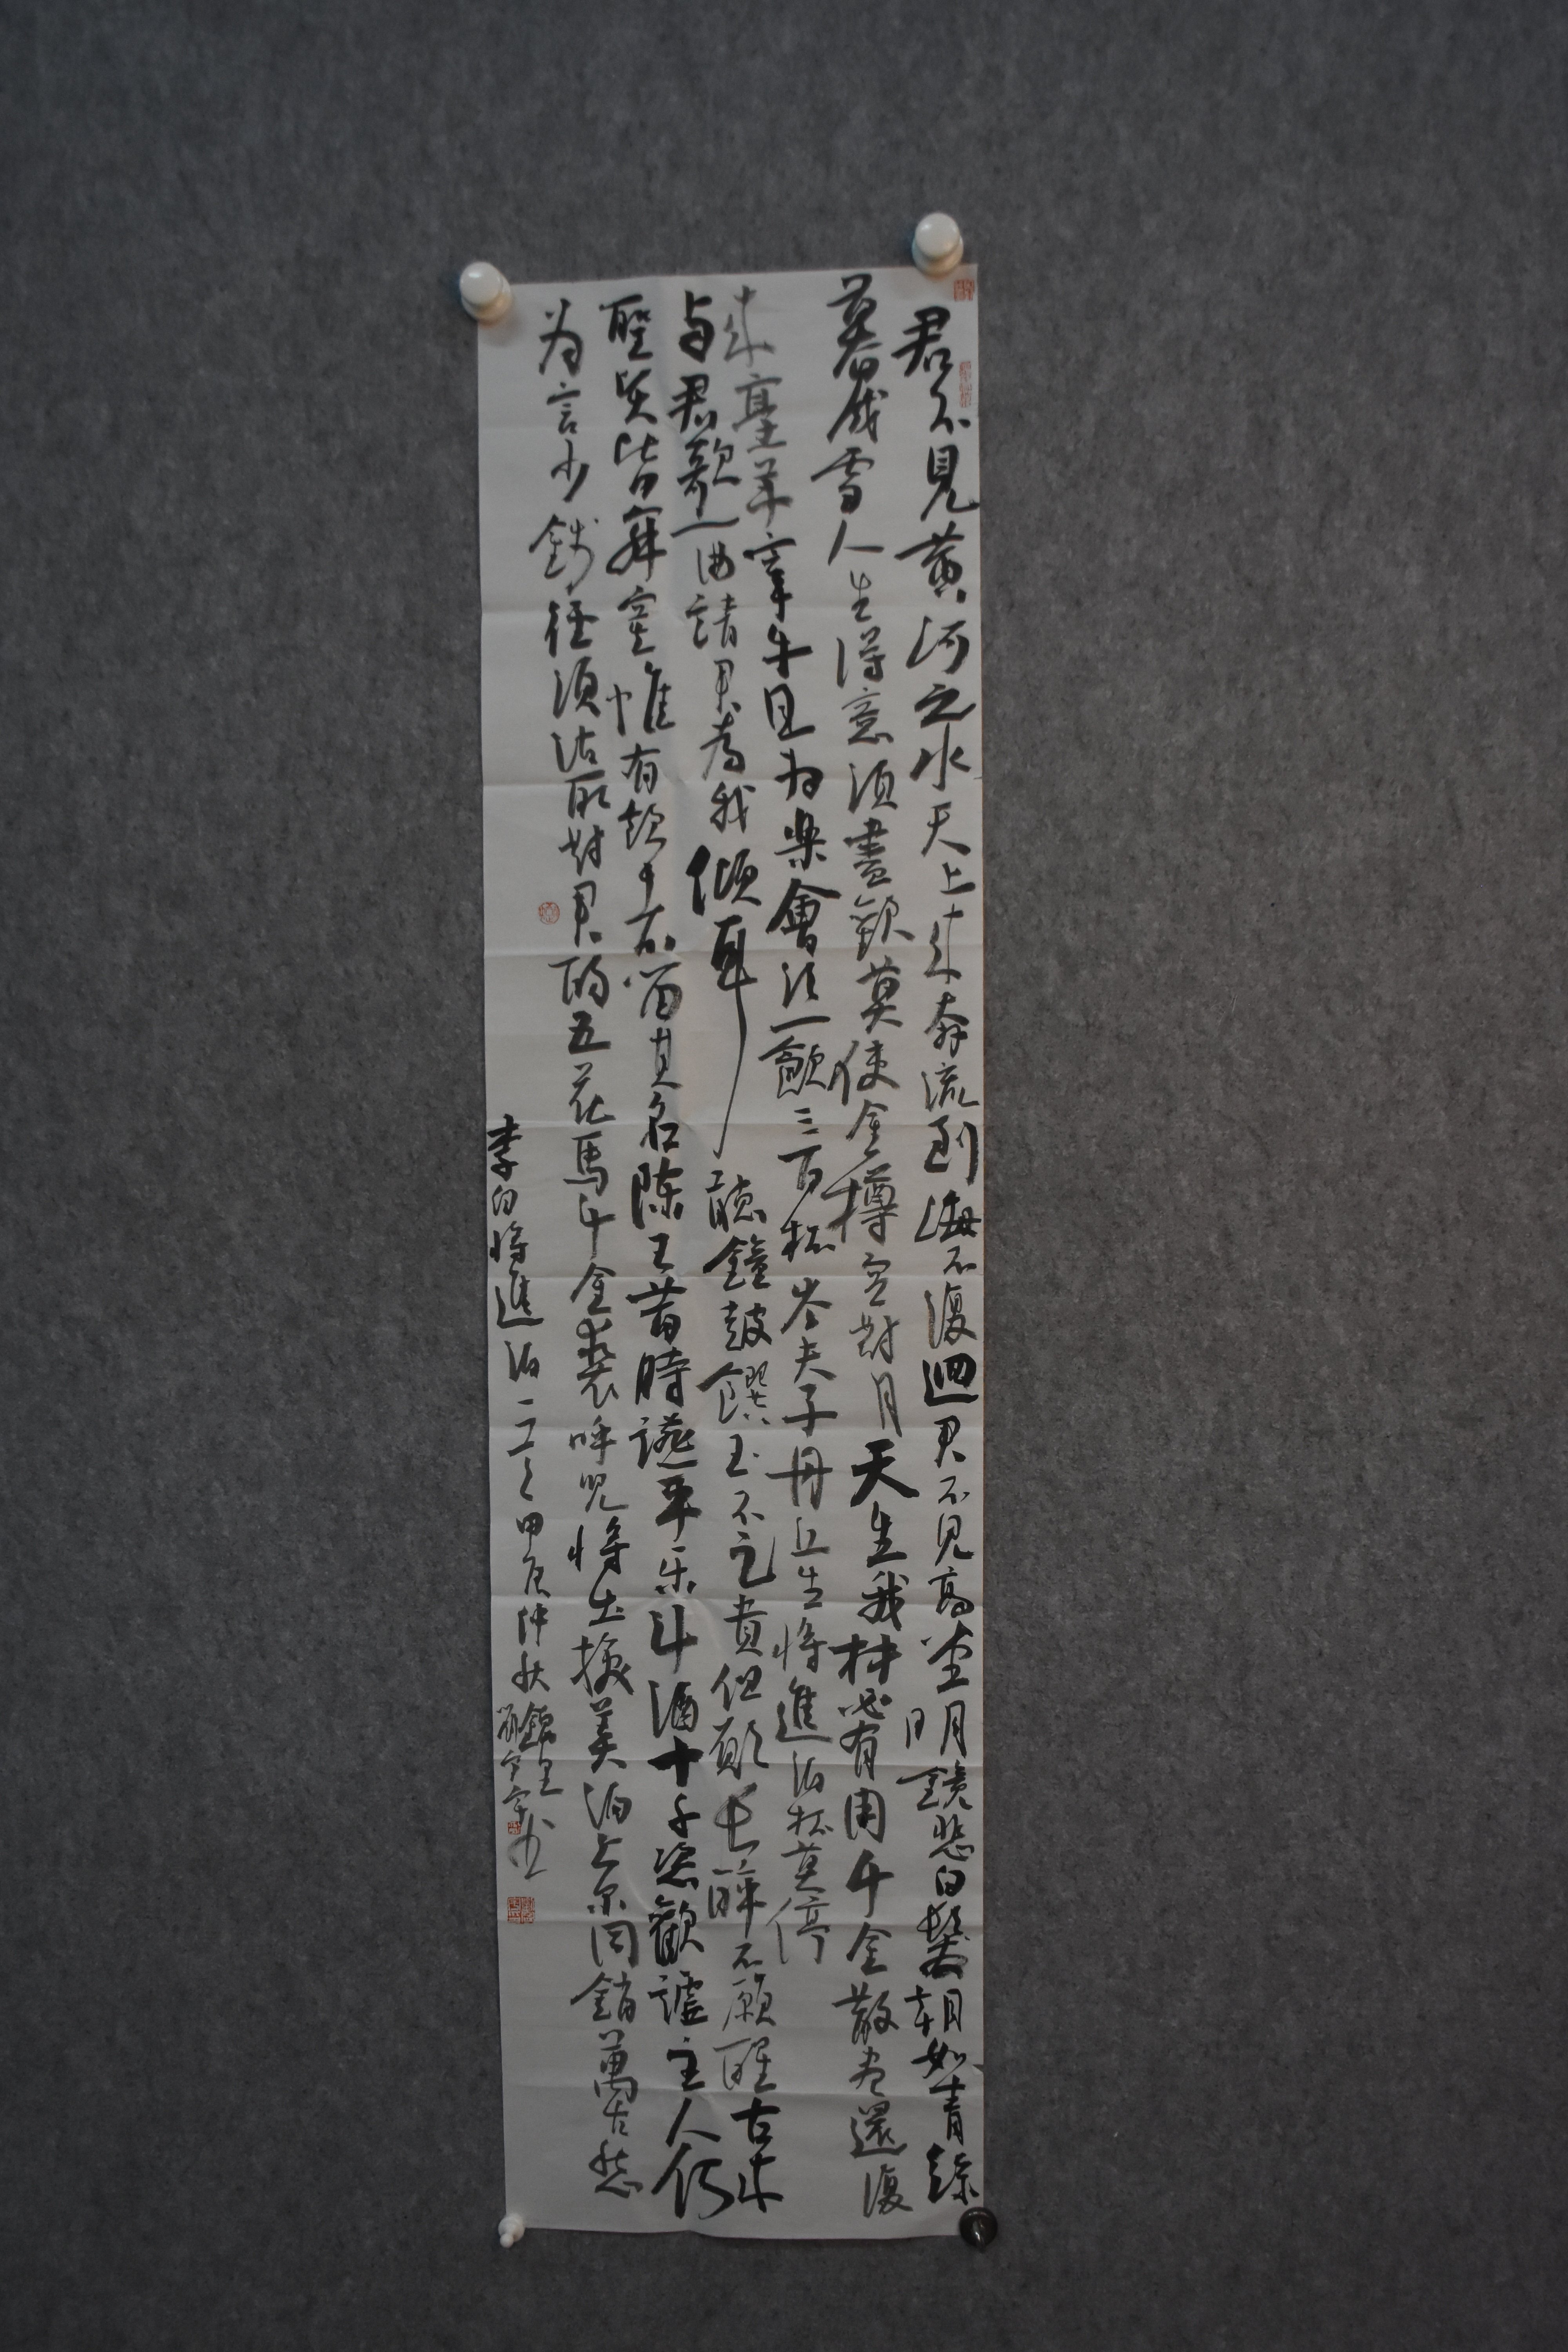 君不見黃河之水天上来奔流到海不復迴君不見高堂明鏡悲白髮朝如青絲
暮成雪人生得意須盡歡莫使金樽空對月天生我材必有用千金散盡還復
来烹羊宰牛且為樂會須一飲三百杯岑夫子丹丘生將進酒杯莫停
与君歌一曲請君為我傾耳聽鐘鼓饌玉不足貴但願長醉不願醒古来
聖賢皆寂寞惟有飲者留其名陈王昔時讌平乐斗酒十千恣歡謔主人何
为言少錢径須沽取對君酌五花馬千金裘呼兒將出換美酒与尔同銷萬古愁
李白將進酒一首 甲辰仲秋錦里